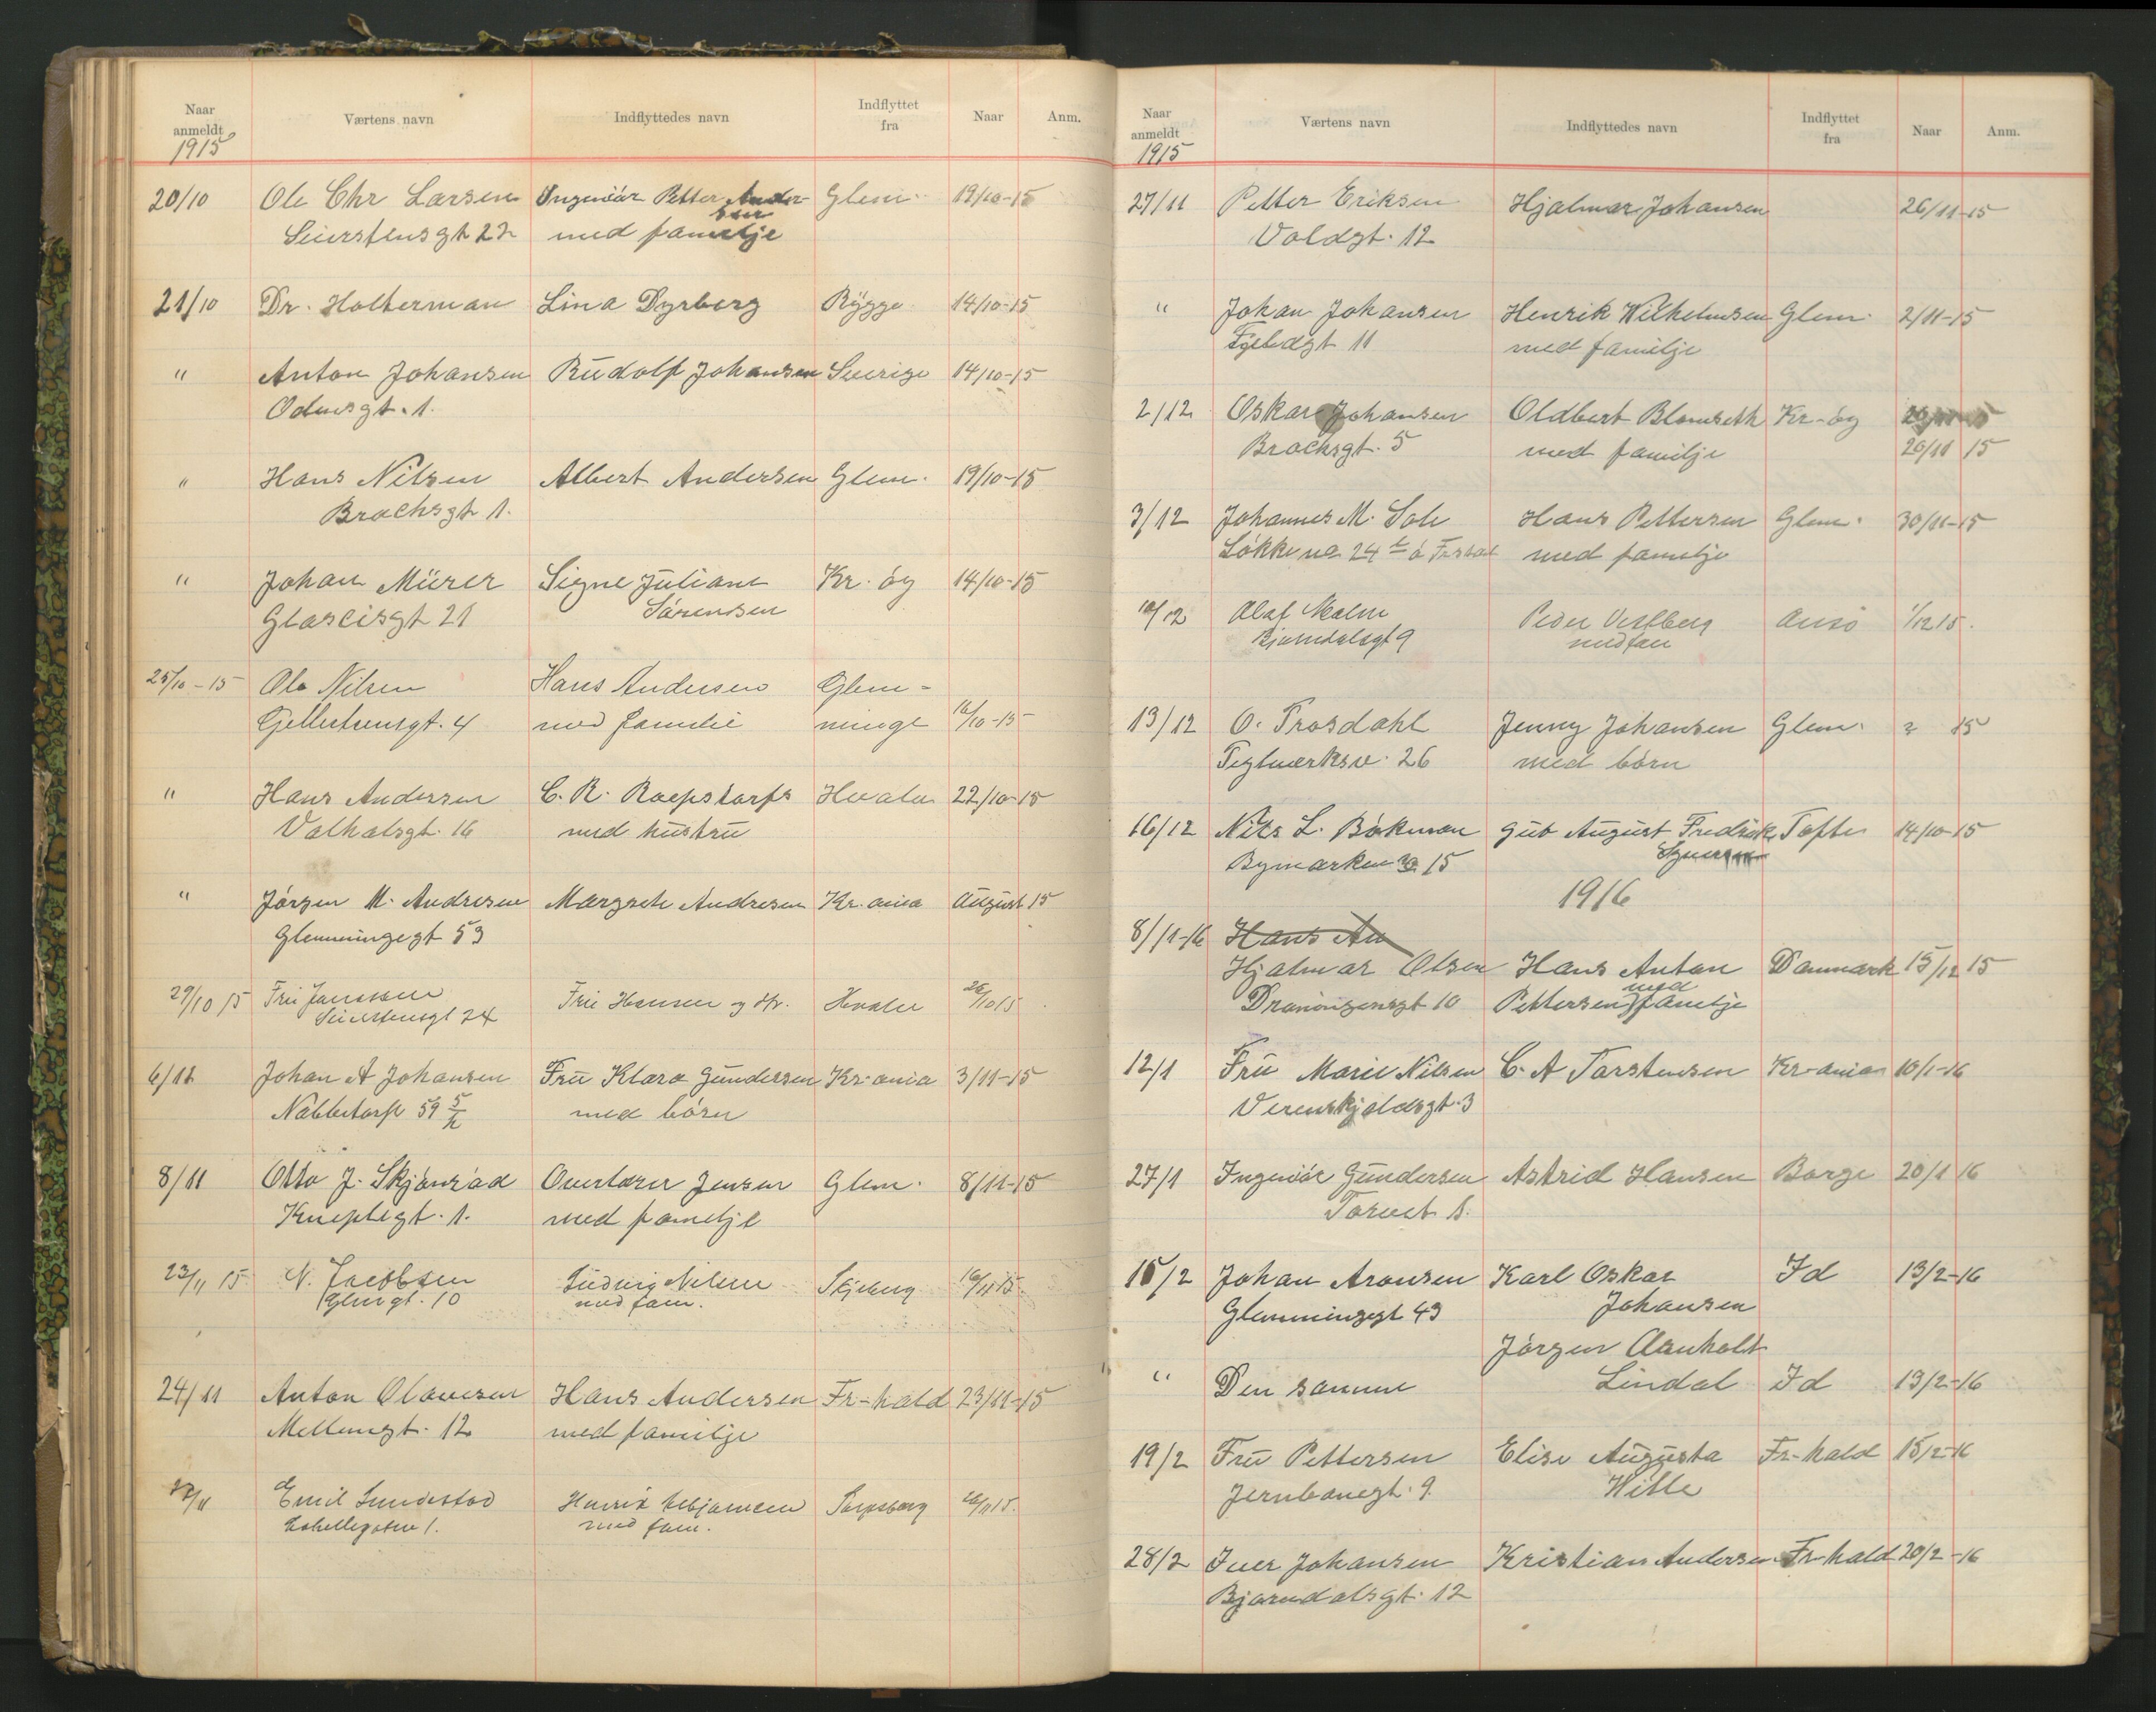 Naar anmeldt 1915 Værtens navn Indflyttedes navn Indflyttet fra Naar Anm.
20/10 Ole Chr Larsen Ingeniør Petter Ander- Glem. 19/10-15
Seierstensgt 22 sen med familje
21/10 Dr. Holterman Lina Dyrborg Rygge 14/10-15
" Anton Johansen Rudolf Johansen Sverige 14/10-15
Odinsgt. 1.
" Hans Nilsen Albert Andersen Glem. 19/10-15
Brochsgt 1.
" Johan Mürer Signe Juliane Kr. øy 14/10-15
Glascisgt 21 Sørensen
25/10-15 Ole Nilsen Hans Andersen Glem-
Gellertsensgt. 4 med familie minge 16/10-15
" Hans Andersen C. R. Roepstorfs Hvaler 22/10-15
Valhalsgt. 16 med hustru
" Jørgen M. Andresen Margrete Andresen Kr.ania August 15
Glemmingegt 53
29/10 15 Fru Janssen Fru Hansen og Hvaler 26/10 15
Seierstensgt 24
6/11 Johan A Johansen Fru Klara Gundersen Kr-ania 3/11-15
Nabbetorp 59 med børn
8/11 Otto J. Skjønråd Overlærer Jensen Glem. 8/11-15
Kniplegt. 1. med familje
23/11 15 N. Jacobsen Ludvig Nilsen Skjeberg 16/11 15.
Glemgt. 10 med fam.
24/11 Anton Olavesen Hans Andersen Fr-hald 23/11-15
Mellemgt. 12 med familje
Emil Sundestad Henrik Sarpsborg 26/11 15.
1. med fam.
Naar anmeldt 1915 Værtens navn Indflyttedes navn Indflyttet fra Naar Anm.
27/11 Petter Eriksen Hjalmar Johansen 26/11-15
Voldgt. 12
" Johan Johansen Henrik Wilhelmsen Glem. 2/11-15
11 med familje
2/12 Oskar Johansen Oldbert Blomseth Kr-øy
Brochsgt. 5 med familje 20/11 15
3/12 Johannes M. Sole Hans Pettersen Glem. 30/11-15
Løkkene 24 med familje
10/12 Olaf Malm Peder Vestberg 1/12 15.
Bjørndalsgt 9 med fam
13/12 O. Trosdahl Jenny Johansen Glem. 2 15
Teglverksv. 26 med børn
16/12 Nils L. Bøkman Gub August Fredrik Tofte 14/10-15
Bymarken 15
1916
8/1-16 Hans An
Hjalmar Olsen Hans Anton Danmark 15/12 15
Dronningensgt 10 Pettersen med familje
12/1 Fru Marie Nilsen C. A Torstensen Kr-ania 10/1-16
Verenskjoldsgt. 3
27/1 Ingeniør Gundersen Astrid Hansen Borge 20/1 16
Torvet 1.
15/2 Johan Aronsen Karl Oskar Id 13/2-16
Glemmingegt 43 Johansen
Jørgen Aanholt
" Den samme Lindal Id 13/2-16
19/2 Fru Pettersen Elise Augusta Fr-hald 15/2-16
Jernbanegt. 9. Hille
28/2 Iver Johansen Kristian Andersen Fr-hald 20/2-16
Bjørndalsgt. 12